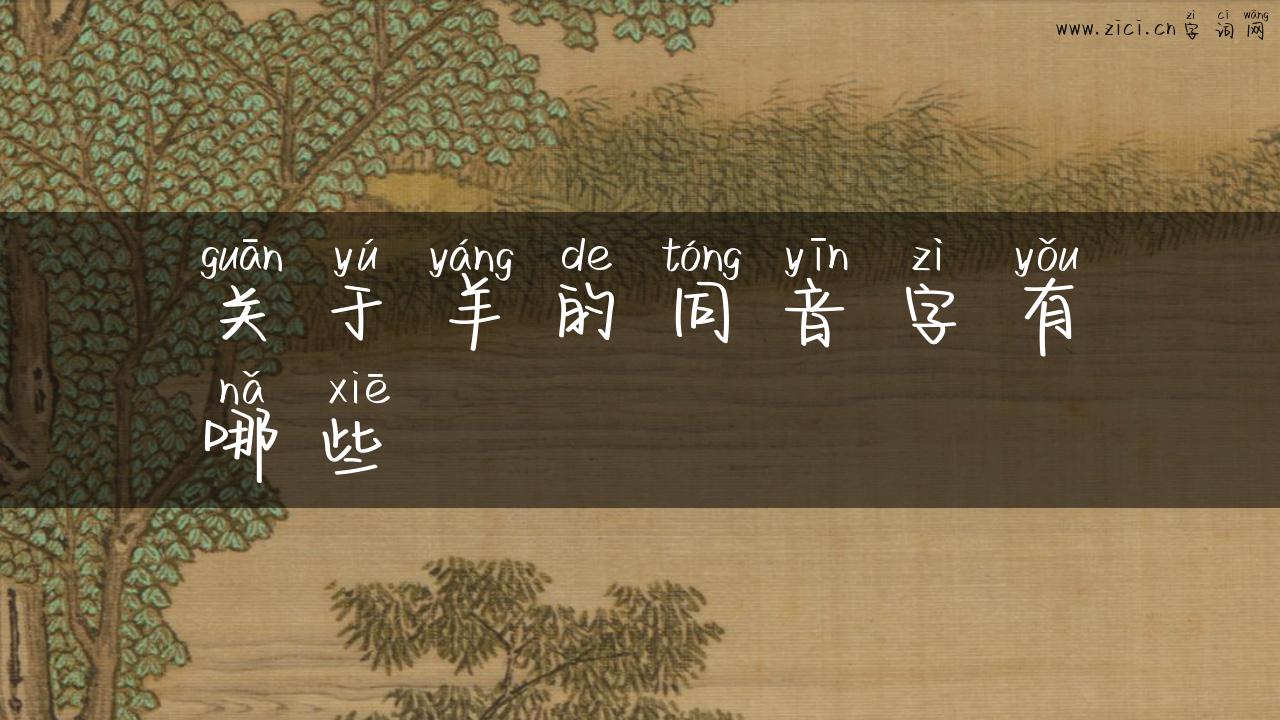 zì cí wǎng
www.zici.cn 字词网
guān yú yáng de tóng yīn zì yǒu
关于羊的同音字有
nǎ xiē
哪些